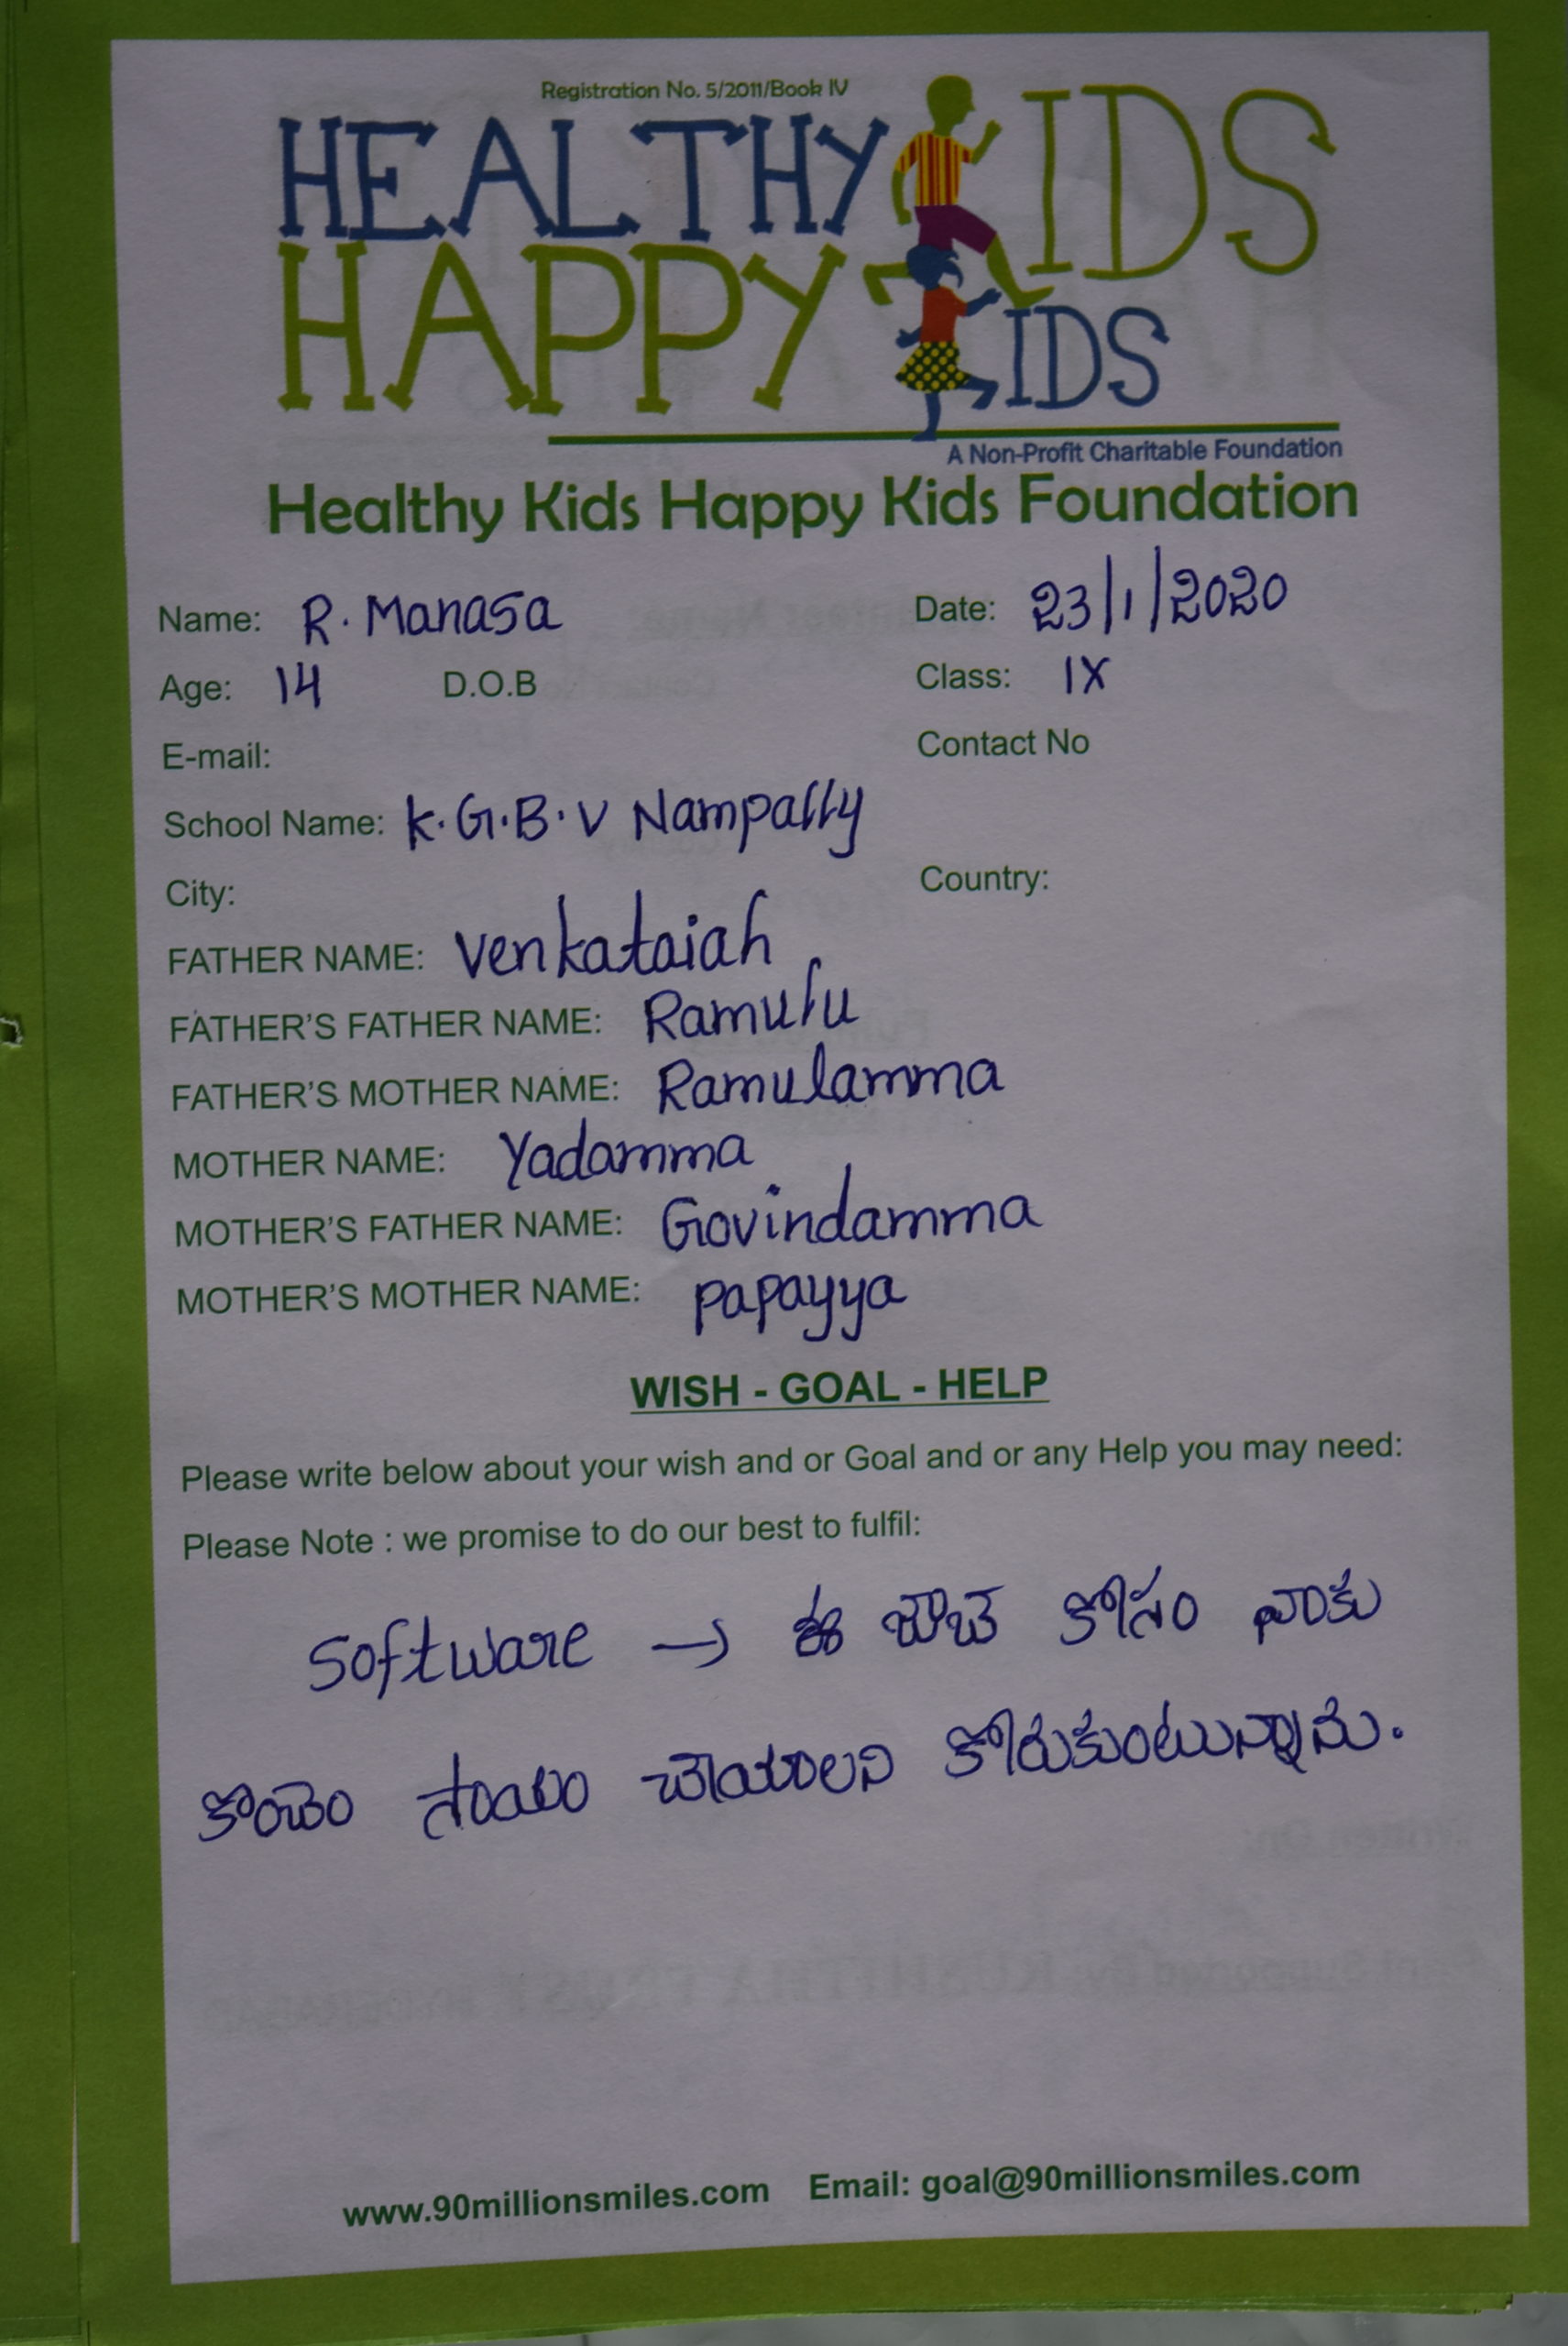 Registration No. 5/2011/Book IV
HEALTHY KIDS
HAPPY KIDS
A Non-Profit Charitable Foundation
Healthy Kids Happy Kids Foundation
Name: R. Manasa Date: 23/1/2020
Age: 14 D.O.B Class: IX
E-mail: Contact No
School Name: K.G.B.V Nampally
City: Country:
FATHER NAME: Venkataiah
FATHER'S FATHER NAME: Ramulu
FATHER'S MOTHER NAME: Ramulamma
MOTHER NAME: Yadamma
MOTHER'S FATHER NAME: Govindamma
MOTHER'S MOTHER NAME: papayya
WISH - GOAL - HELP
Please write below about your wish and or Goal and or any Help you may need:
Please Note : we promise to do our best to fulfil:
Software → ఈ కోసం నాకు
కొంచెం సాయం చేయాలని కోరుకుంటున్నాను.
www.90millionsmiles.com Email: goal@90millionsmiles.com